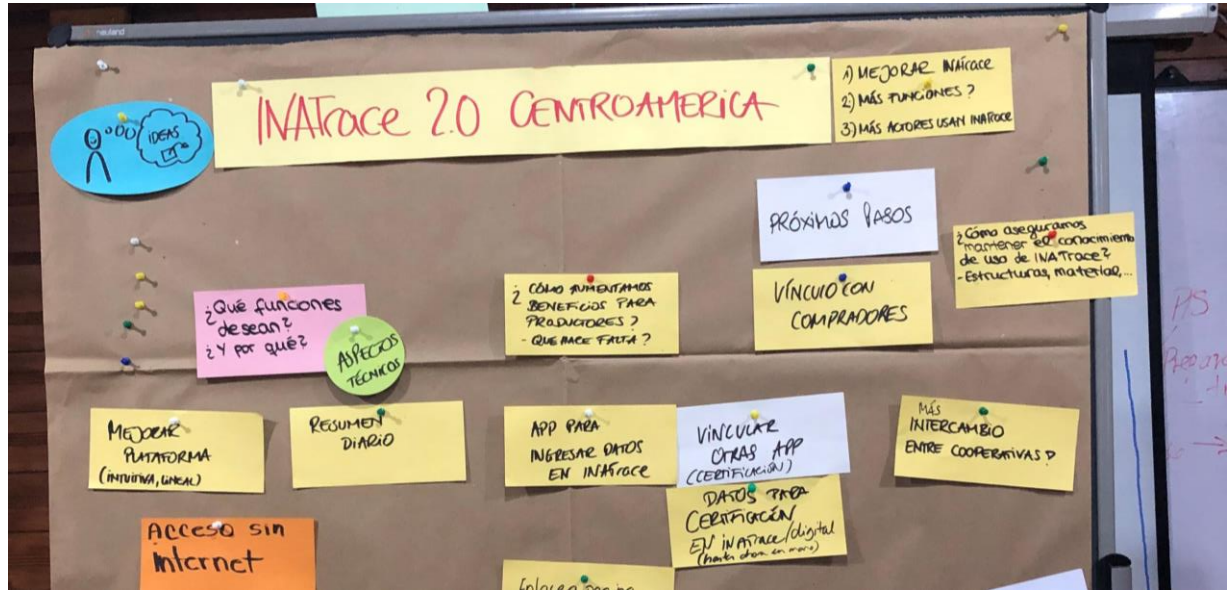 neuland
IDEAS
INATrace 2.0 CENTROAMERICA
1) MEJORAR INATrace
2) MÁS FUNCIONES?
3) MÁS ACTORES USAN INATrace
PRÓXIMOS PASOS
¿Cómo aseguramos
mantener el conocimiento
de uso de INATrace?
- Estructuras, material,...
¿Qué funciones
desean?
¿Y por qué?
ASPECTOS
TÉCNICOS
¿CÓMO AUMENTAMOS
BENEFICIOS PARA
PRODUCTORES?
- QUE HACE FALTA?
VÍNCULO CON
COMPRADORES
MEJORAR
PLATAFORMA
(INTUITIVA, LINEAL)
RESUMEN
DIARIO
APP PARA
INGRESAR DATOS
EN INATrace
VINCULAR
OTRAS APP
(CERTIFICACIÓN)
MÁS
INTERCAMBIO
ENTRE COOPERATIVAS?
DATOS PARA
CERTIFICACIÓN
EN INATrace/digital
(hasta ahora en mano)
Acceso sin
internet
PS